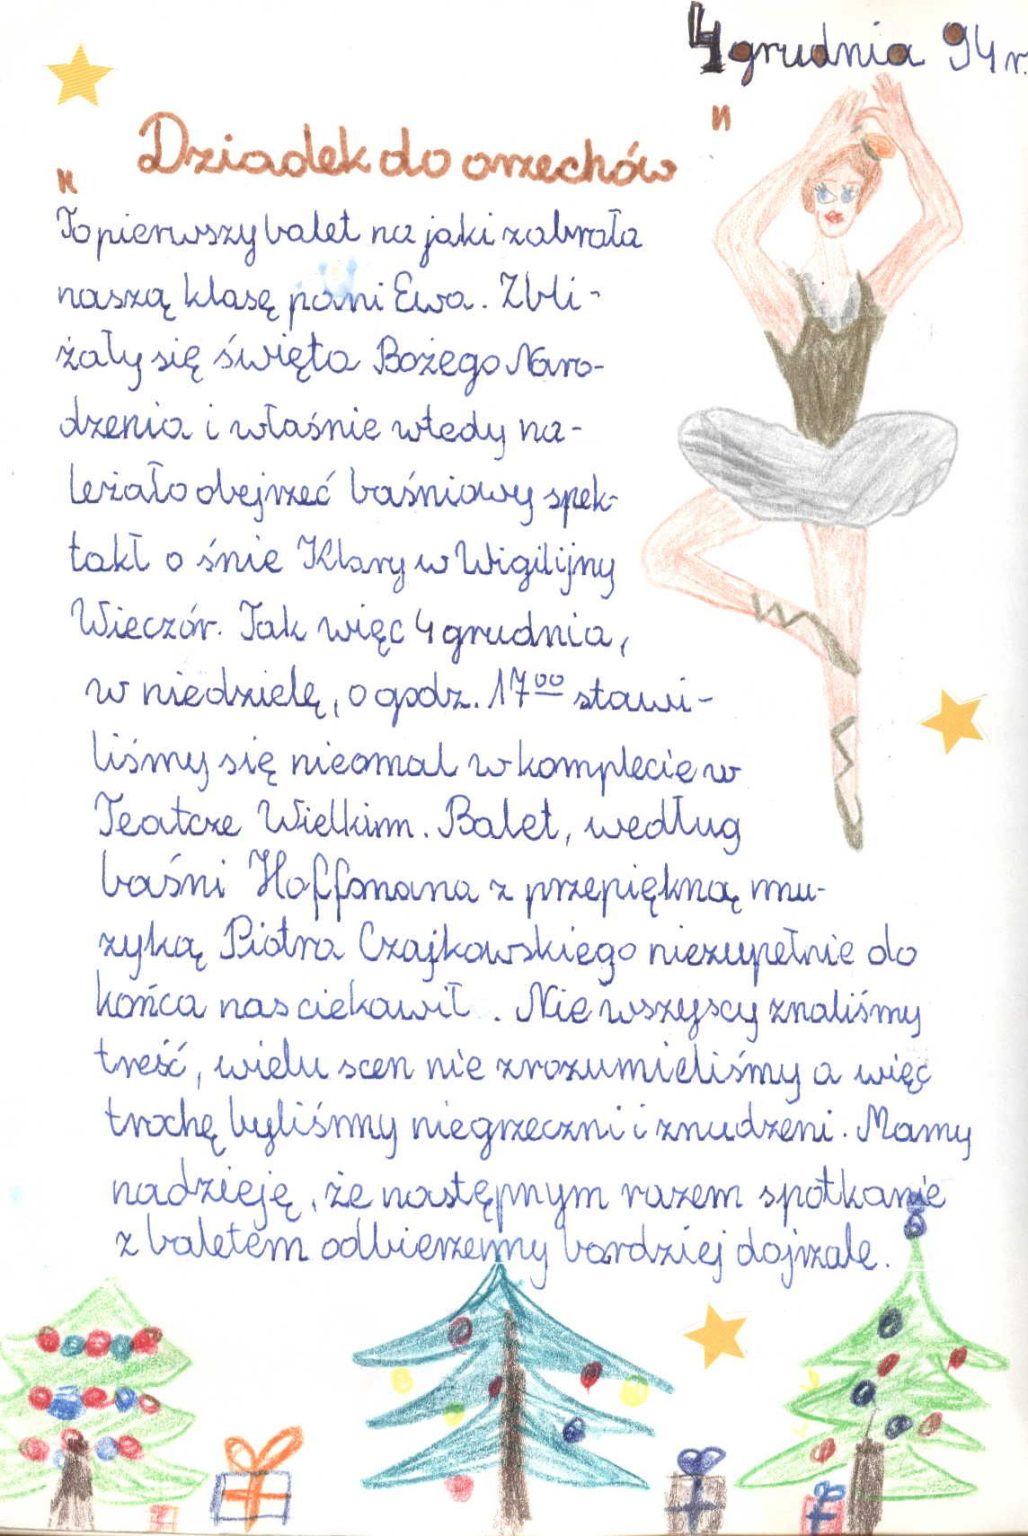 4 grudnia 94 r.
„Dziadek do orzechów"
To pierwszy balet na jaki zabrała
naszą klasę pani Ewa. Zbli-
żały się święta Bożego Naro-
dzenia i właśnie wtedy na-
leżało obejrzeć baśniowy spek-
takl o śnie Klary w Wigilijny
Wieczór. Tak więc 4 grudnia,
w niedzielę, o godz. 17⁰⁰ stawi-
liśmy się nieomal w komplecie w
Teatrze Wielkim. Balet, według
baśni Hoffmana z przepiękną mu-
zyką Piotra Czajkowskiego niezupełnie do
końca nas ciekawił. Nie wszyscy znaliśmy
treść, wielu scen nie zrozumieliśmy a więc
trochę byliśmy niegrzeczni i znudzeni. Mamy
nadzieję, że następnym razem spotkanie
z baletem odbierzemy bardziej dojrzale.